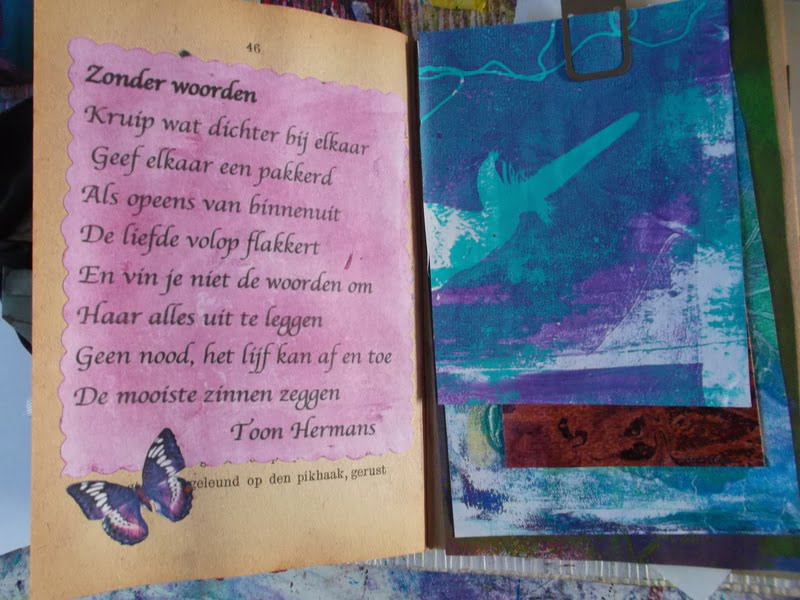 46
Zonder woorden
Kruip wat dichter bij elkaar
Geef elkaar een pakkerd
Als opeens van binnenuit
De liefde volop flakkert
En vin je niet de woorden om
Haar alles uit te leggen
Geen nood, het lijf kan af en toe
De mooiste zinnen zeggen
Toon Hermans
geleund op den pikhaak, gerust